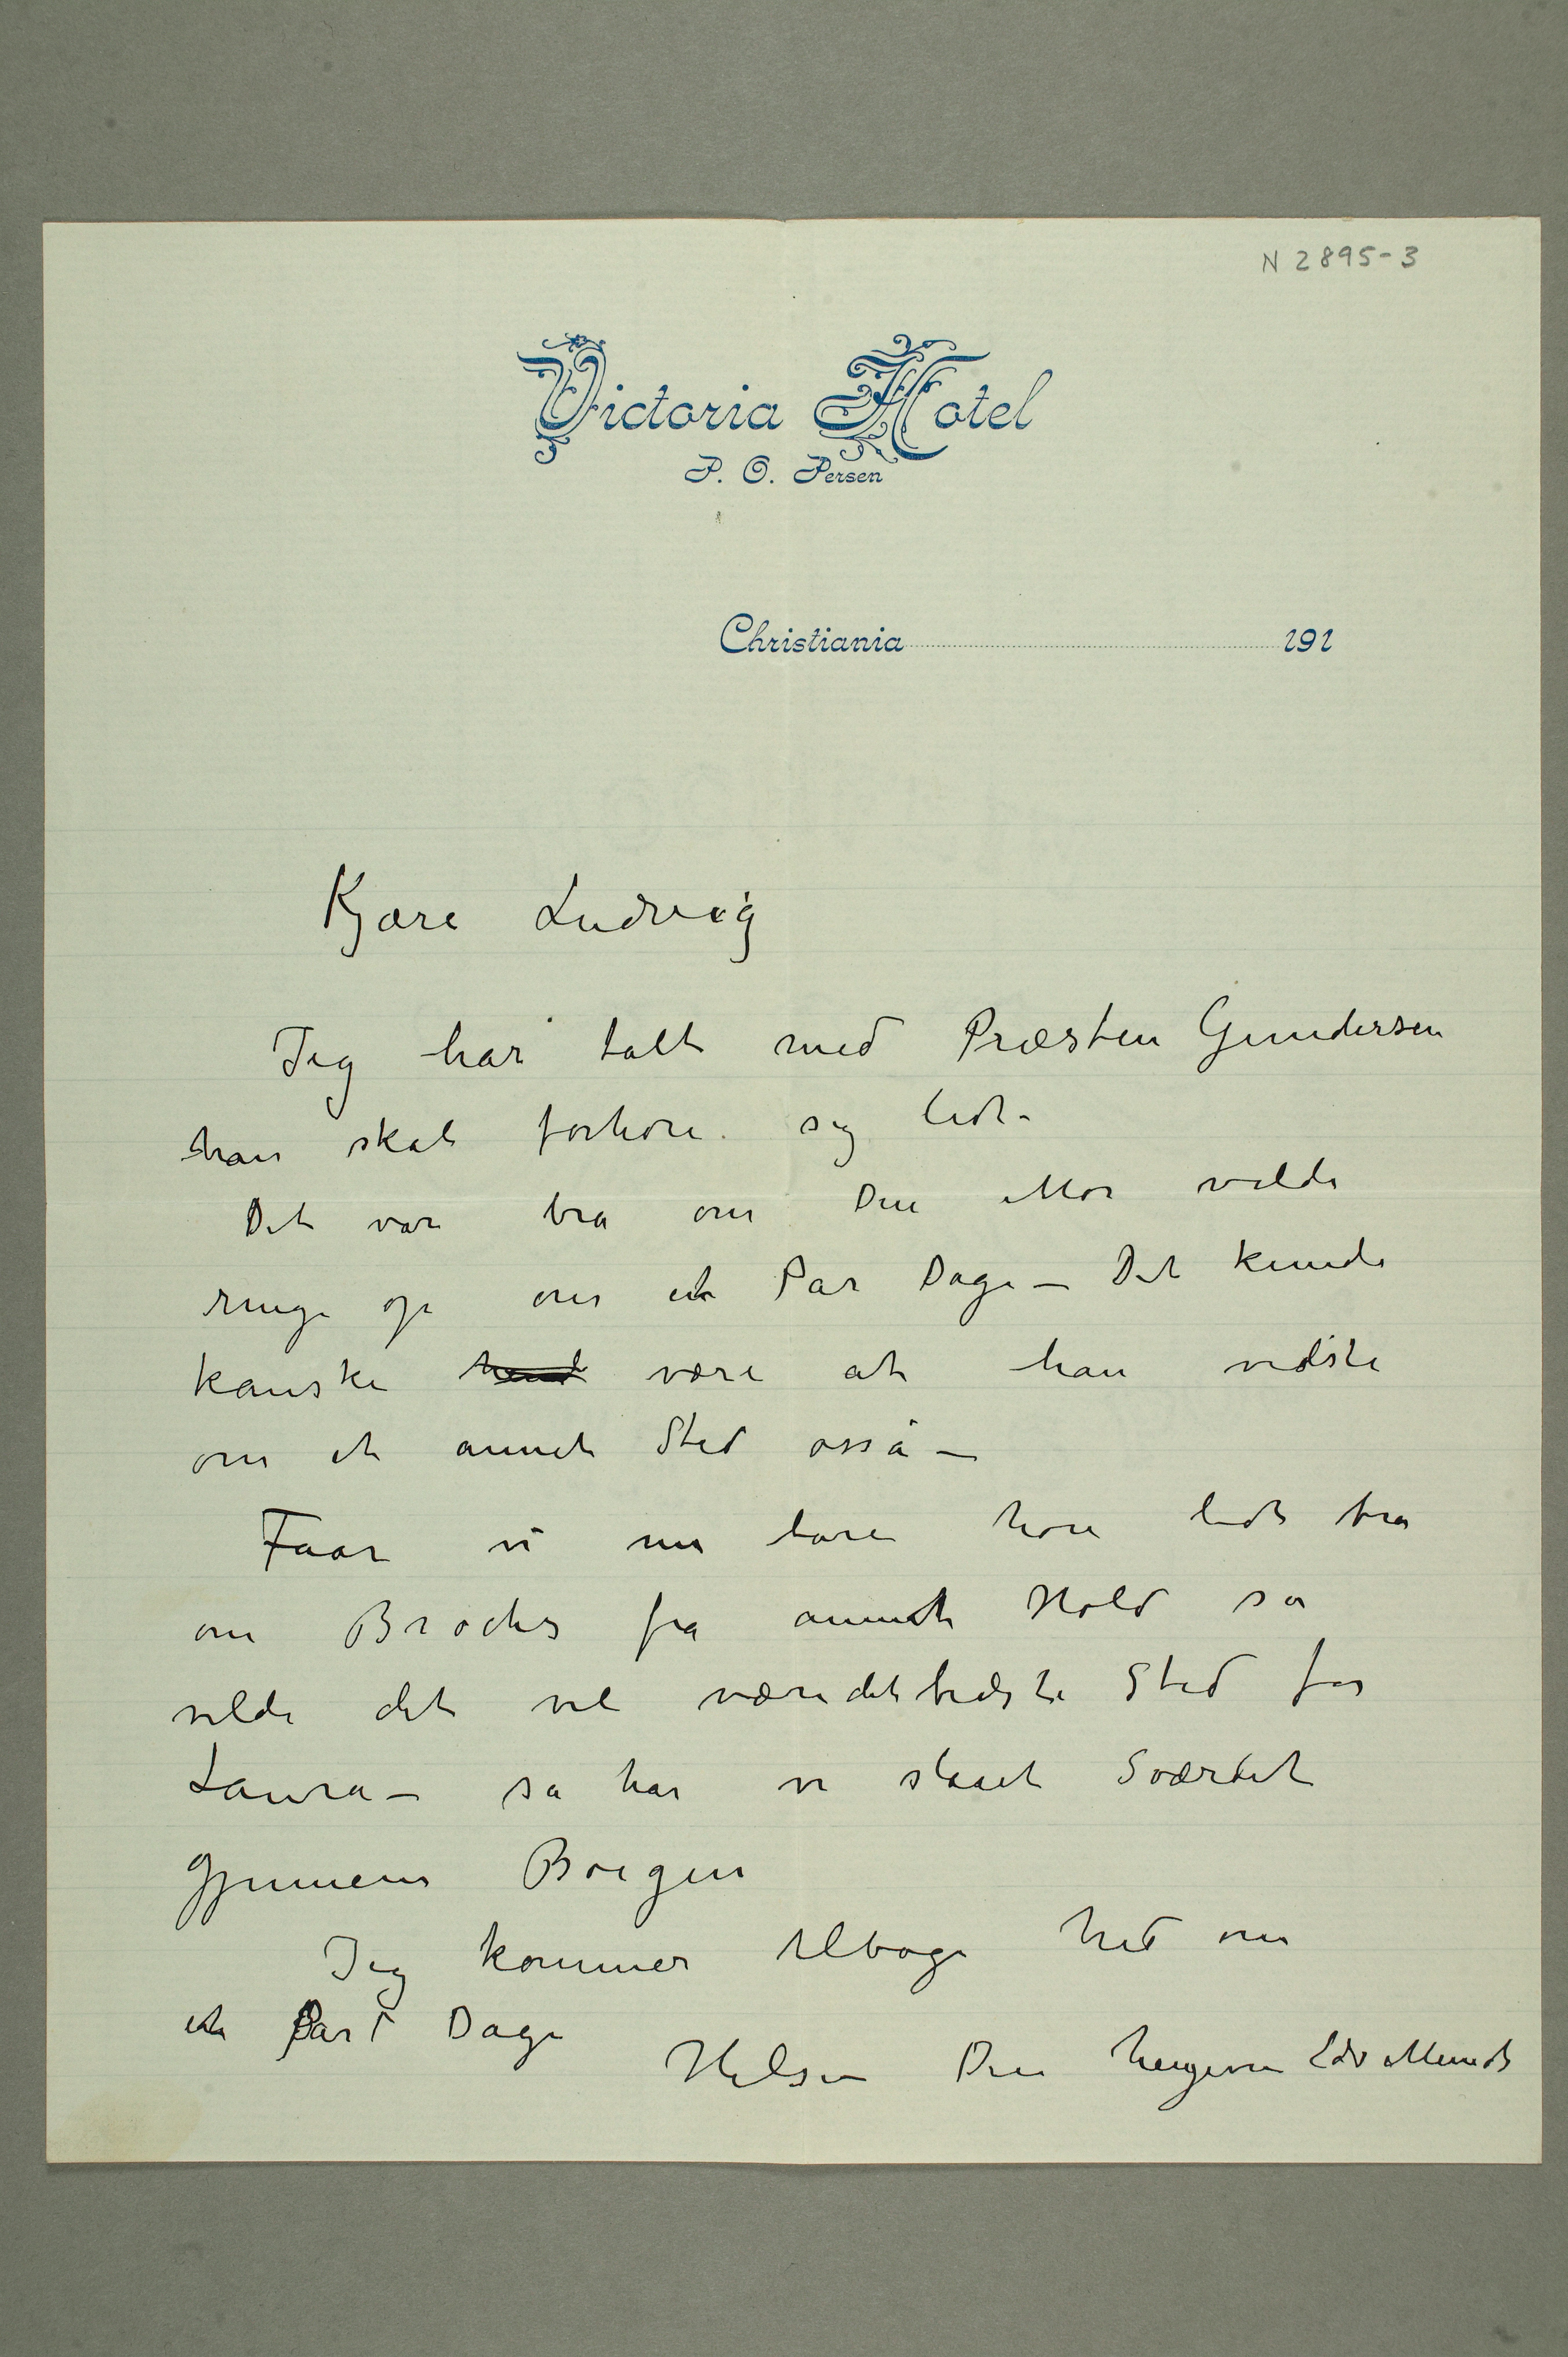 N 2895-3
Victoria Hotel
P. O. Persen
Christiania 191
Kjære Ludvig
Jeg har talt med Præsten Gundersen
han skal forhøre sig lidt.
Det var bra om Din Mor vilde
ringe op om et Par Dage – Det kunde
kanske være at han vidste
om et annet Sted osså –
Faar vi nu bare høre lidt bra
om Brochs fra annet Hold så
vilde det vel være det bedste Sted for
Laura – så har vi slaaet Sværdet
gjennem Borgen
Jeg kommer tilbage hid om
et Par Dage
Hilsen Din hengivne Edv Munch